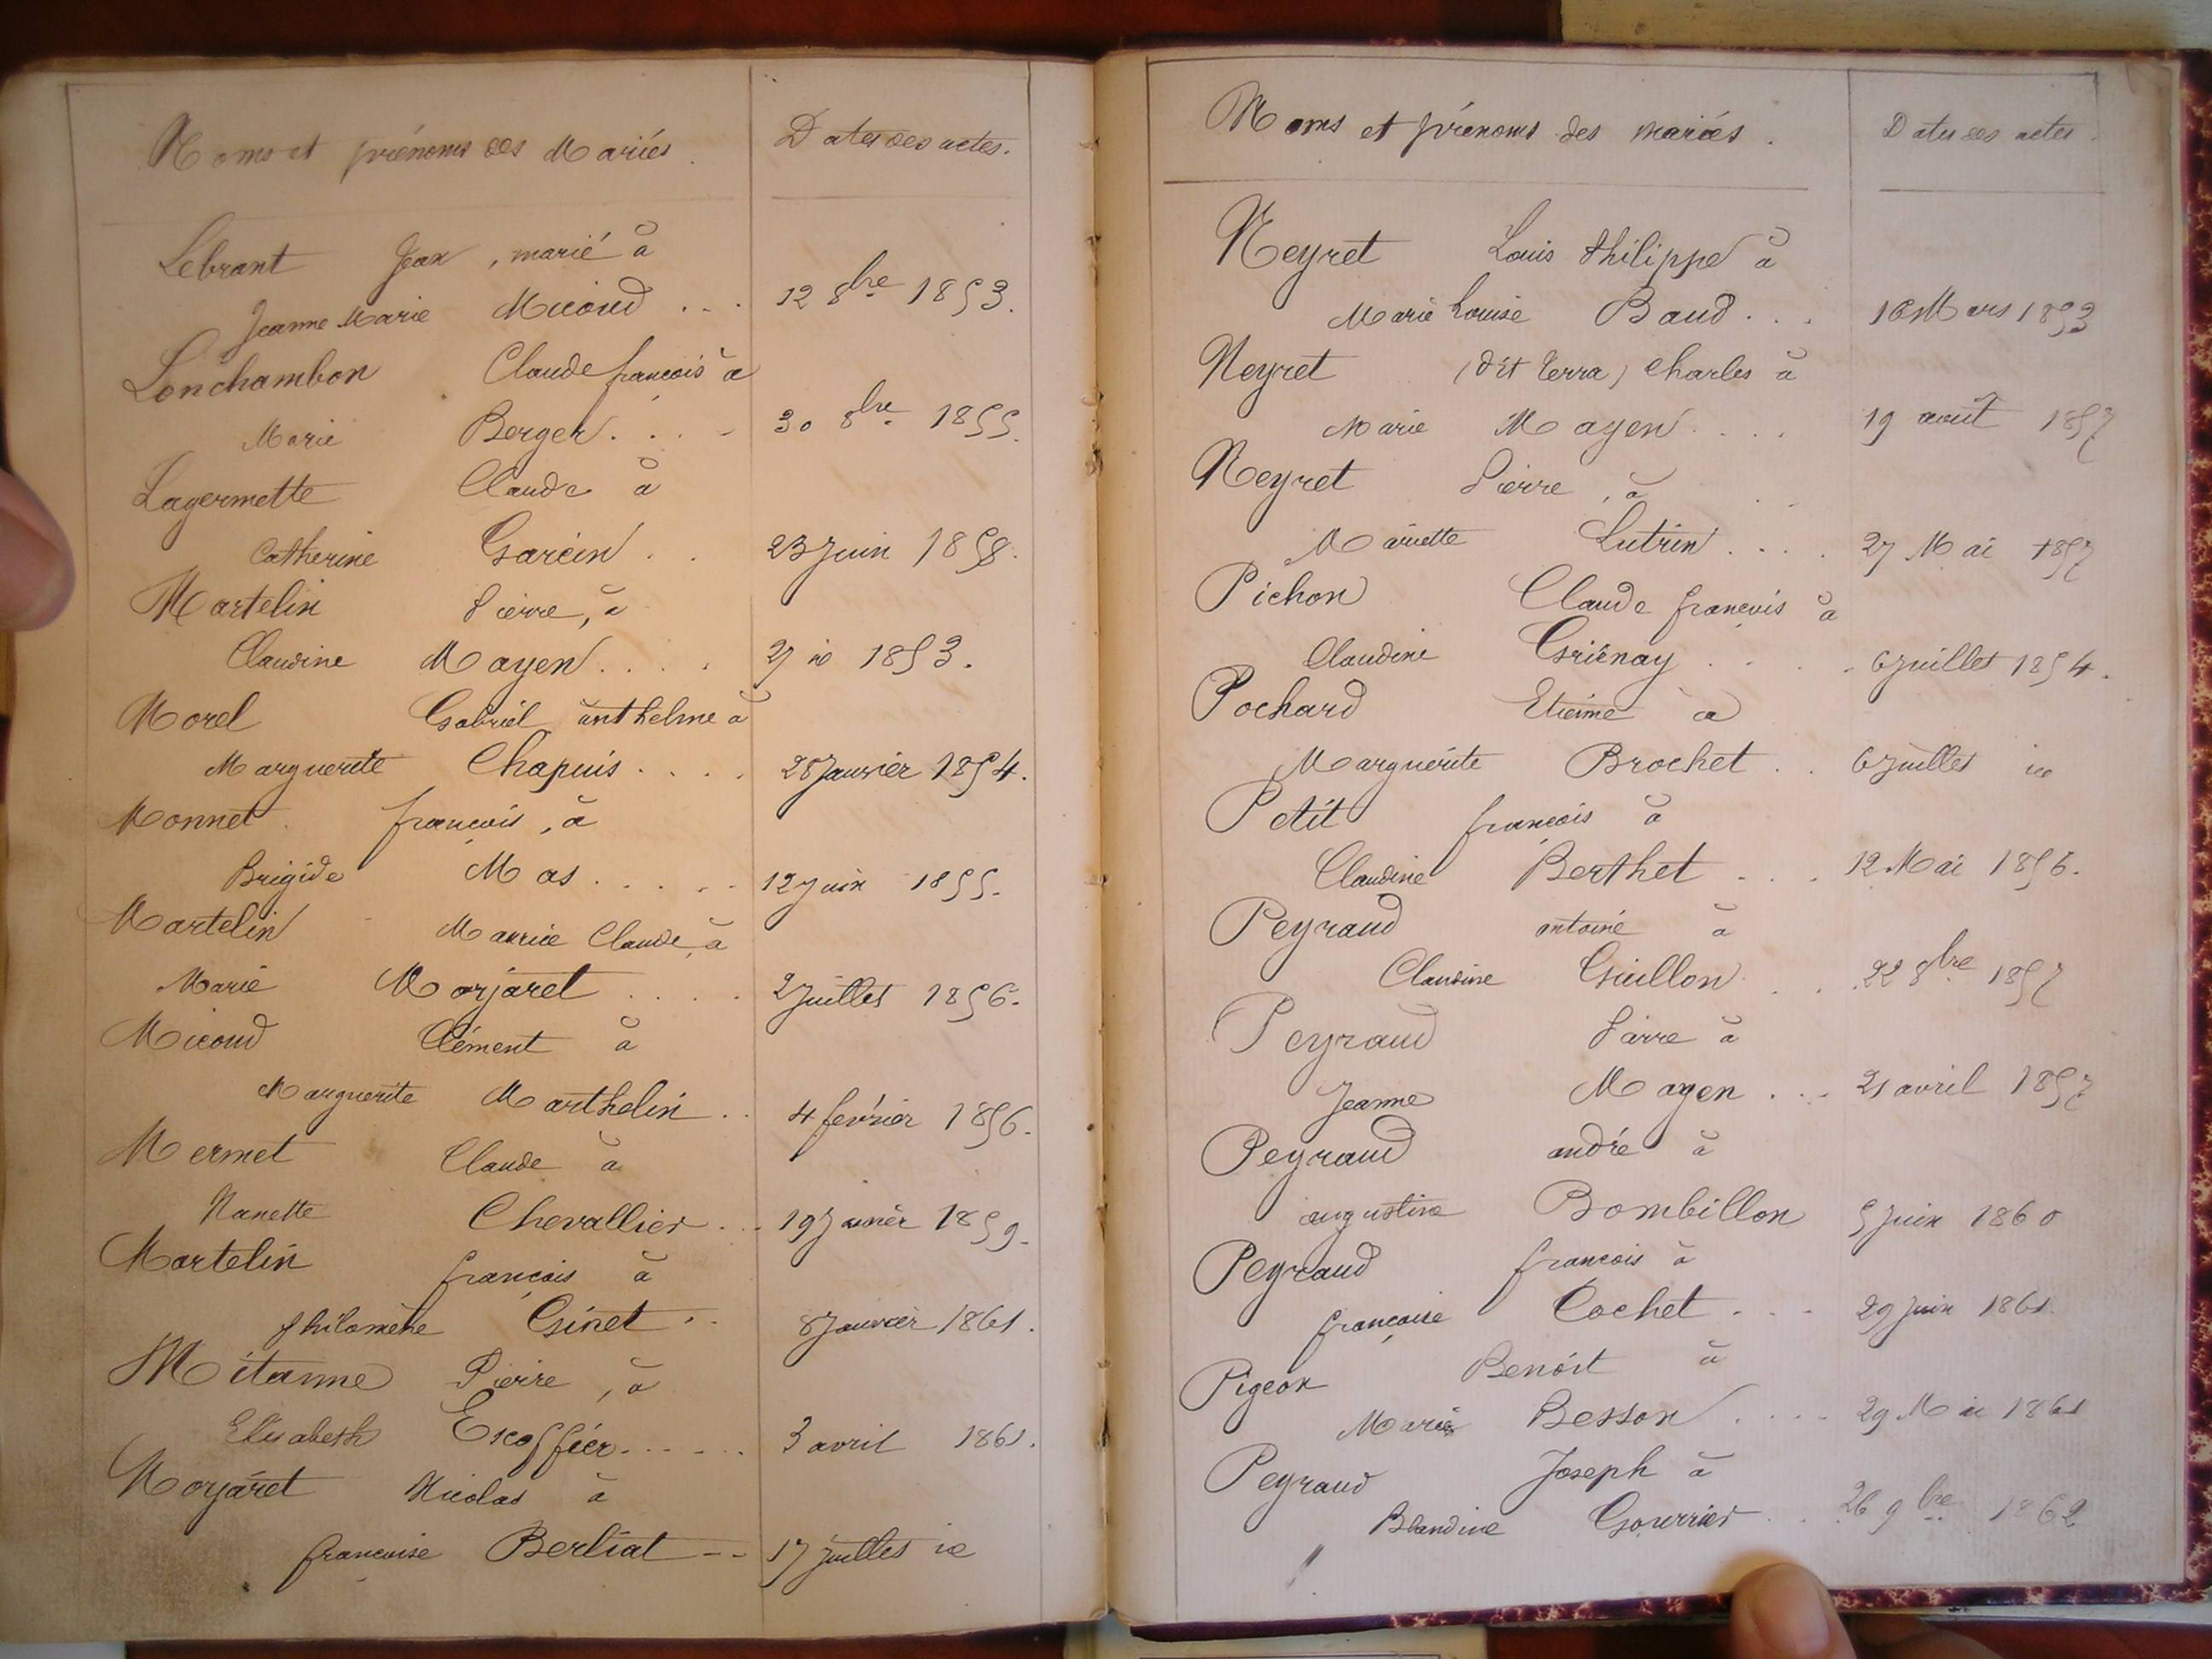 Noms et prénoms des Mariés. Dates des actes.
Lebrant Jean, marié à
Jeanne Marie Micoud ... 12 8bre 1853.
Lonchambon Claude françois à
Marie Berger.... 30 8bre 1855.
Lagermette Claude à
Catherine Garcin.. 23 Juin 1858.
Martelin Pierre, à
Claudine Mayen.... 27 id 1853.
Morel Gabriel anthelme à
Marguerite Chapuis.... 28 Janvier 1854.
Monnet françois, à
Brigide Mas..... 12 Juin 1855.
Martelin Maurice Claude, à
Marie Morjaret.... 2 Juillet 1856.
Micoud Clément à
Marguerite Marthelin.. 4 février 1856.
Mermet Claude à
Nanette Chevallier... 19 Janvier 1859.
Martelin françois à
philomène Ginet.. 8 Janvier 1861.
Mitanne Pierre, à
Elisabeth Escoffier...... 3 avril 1861.
Morjaret Nicolas à
françoise Berliat -- 17 juillet id
Noms et prénoms des mariés. Dates des actes.
Neyret Louis Philippe à
Marie Louise Baud... 16 Mars 1853
Neyret (dit Terra) Charles à
Marie Mayen.... 19 août 1857
Neyret Pierre, à
Mariette Lutrin.... 27 Mai 1857
Pichon Claude françois à
Claudine Griénay.... 6 Juillet 1854.
Pochard Etienne à
Marguerite Brochet.. 6 Juillet id
Petit françois à
Claudine Berthet... 12 Mai 1856.
Peyraud antoine à
Claudine Guillon... 22 8bre 1857
Peyraud Pierre à
Jeanne Mayen... 21 avril 1857
Peyraud andré à
augustine Bombillon 5 Juin 1860
Peyraud françois à
françoise Cochet... 29 Juin 1861.
Pigeon Benoit à
Marie Besson.... 29 Mai 1861
Peyraud Joseph à
Blandine Gourrier.. 26 9bre 1862